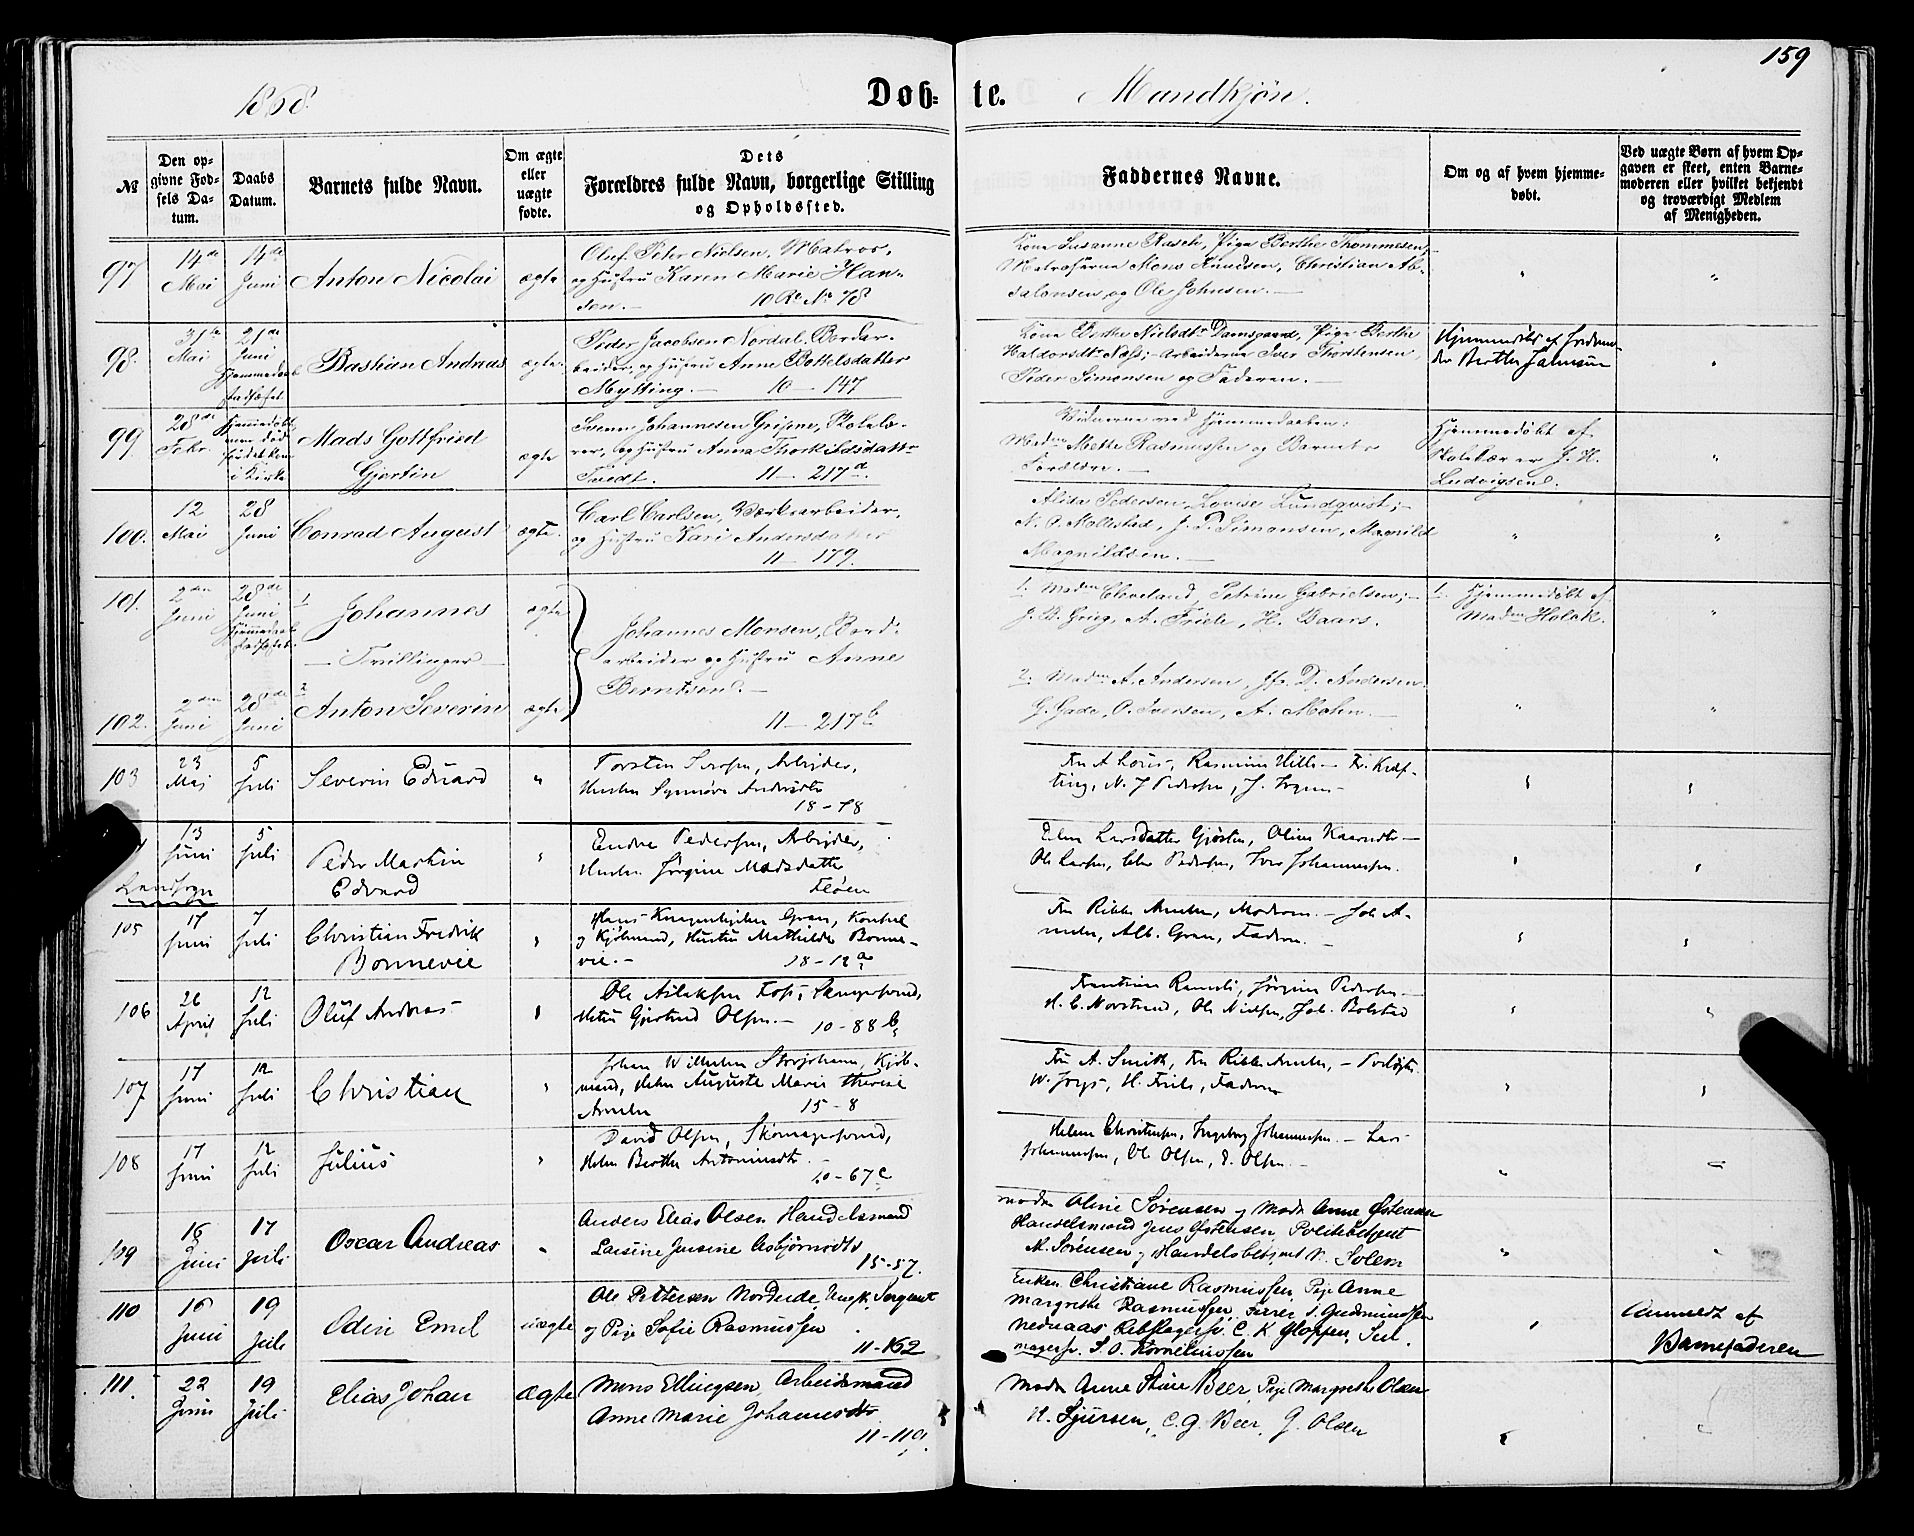 159
1868.
Døb-te.
Mandkjøn.
№
Den opgivne Fødsels Datum.
Daabs Datum.
Barnets fulde Navn.
Om ægte eller uægte fødte.
Dets Forældres fulde Navn, borgerlige Stilling og Opholdssted.
Faddernes Navne.
Om og af hvem hjemmedøbt.
Ved uægte Børn af hvem Opgaven er skeet, enten Barnemoderen eller hvilket bekjendt og troværdigt Medlem af Menigheden.
97
14de Mai
14de Juni
Anton Nicolai
ægte
Oluf Peter Nielsen, Matros,
og Hustru Karen Marie Han-
sen.— 10 Rd No 78
Kone Susanne Rasch, Pige Berthe Thommesen,
Matroserne Mons Knudsen, Christian Ab-
salonsen, og Ole Johnsen.—
98.
31te Mai
21de Juni
Hjemmedaab stadfæstet
Bastian Andreas
ægte.
Peder Jacobsen Nordal, Bordar-
beider, og Hustru Anne Bottelsdatter
Mytting.— 10 — 147
Kone Berthe Nielsdtr Damsgaard, Pige Berthe
Haldorsdtr Næss;— Arbeiderne Iver Thorstensen,
Peder Simonsen og Faderen.—
Hjemmedøbt af Jordemo-
der Berthe
99.
28de Febr.
Hjemmedøbt
men død
førdet kom
i Kirke
Mads Gottfried
Gjertin
ægte
Svenn Johannesen Gripne, Skolelæ-
rer, og Hustru Anna Thorkildsdatter
Tvedt. 11 — 217d.
Vidnerne ved Hjemmedaaben:
Madm Mette Rasmussen og Barnets
Forældre.—
Hjemmedøbt af
Skolelærer J. H.
Ludvigsen.
100.
12 Mai
28 Juni
Conrad August
ægte.
Carl Carlsen, Værksarbeider,
og Hustru Kari Andersdatter
11 — 179.
Alida Pedersen, Lovise Lundqvist;—
N. O. Mollestad, J. P. Simonsen, Magnild
Magnildsen.—
101.
2den Juni
28de Juni
Hjemmedaab stadfæstet.
1
Johannes
— Tvillinger —
ægte
Johannes Monsen, Bord-
arbeider og Hustru Anne
Berntsen.—
11 — 217b
1. Madm Cleveland, Petrine Gabrielsen;—
J. B. Grieg, A. Friele, H. Baars.
1. Hjemmedøbt af
Madm Holck.
102.
2den Juni
28de Juni
2
Anton Severin
ægte
2. Madm A. Andersen, Jfr. D. Andersen.
G. Gade, O. Iversen, A. Mohn.—
103
23 Maj
5 Juli
Severin Eduard
Torsten Arbejder,
Hustru Synnøve Andersdtr
18-78
N. J. Pedersen, J.
13 Juni
5 Juli
Landsogn
Peder Martin
Edvard
Endre Pedersen, Arbejder,
Hustru Jørgine Madsdatter
Fløen
Elen Larsdatter Gjøsten, Oline Kaarsdtr —
Ole Larsen, Peder Pedersen, Iver Johannessen.
105
17 Juni
7 Juli
Christian Fredrik
Bonnevie
Hans Kragenhjelm Gran, Konsul
og Kjøbmand, Hustru Mathilde Bonne-
vie.— 18-12a
Fru Rikke Amelen, Moderen.— Joh A-
melen, Alb. Gran, Faderen.—
106
26 April
12 Juli
Oluf Andreas
Ole Aslaksen Foss, Skomagersvend,
Hustru Gjertrud Olsen.— 10-88b
Jørgine Pedersen —
H. C. Norstrand, Ole Nielsen, Joh. Bolstad
107
17 Juni
12 Juli
Christian
Johan Wilhelm Storjohann, Kjøb-
mand, Hustru Auguste Marie Therese
15-8
Fru A. Smith, Fru Rikke
W. H. Friele, Faderen
108
17 Juni
12 Juli
Julius
David Olsen, Skomagersvend,
Hustru Berthe Antoniusdtr.
10-67c
Helene Christensen, Ingeborg Johannessen.— Lars
Johannessen, Ole Olsen, E. Olsen.—
109
16 Juni
17 Juli
Oscar Andreas
Anders Elias Olsen Handelsmand
Larsine Jensine Asbjørnsdtr
15-57.
Mada Oline Sørensen og Mada Anne Østensen
Handelsmand Jens Østensen, Politibetjent
M. Sørensen og Handelsbetjent N. Solem
110
16 Juni
19 Juli
Odin Emil
uægte
Ole Pettersen Nordeide, Unegk. Sergeant
og Pige Sofie Rasmussen
11-162
Enken Christiane Rasmussen, Pige Anne
Margrethe Rasmussen, S. Gudmundsen
Nednaas Rebslagersv. C. K. Gloppen, Seil-
magersv. S. O. Kornelinssen
Anmeldt af
Barnefaderen
111.
22 Juni
19 Juli
Elias Johan
ægte
Mons Ellingsen, Arbeidsmand
Anne Marie Johannesdtr
11-119
Mada Anne Stine Beer, Pige Margrethe Olsen
H. Sjursen, C. G. Beer, G. Olsen